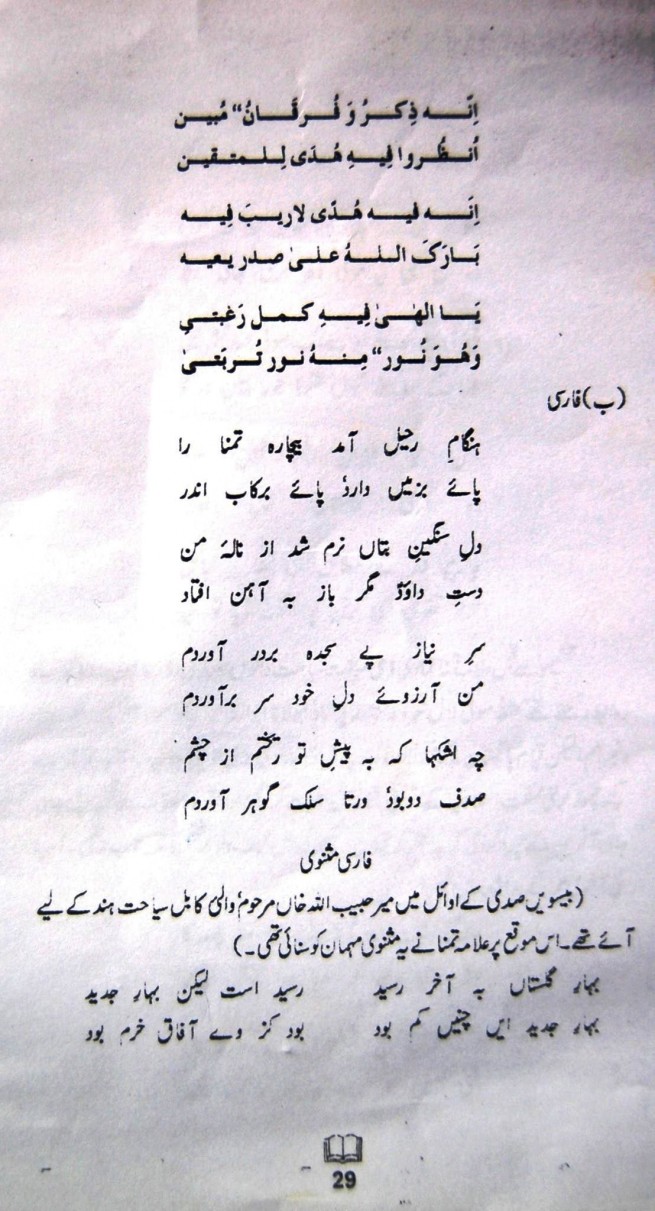 اِنّہ ذِکرُ وَ فُرقَانُ“ مُبین
اُنظُروا فِیہِ ھُدَی لِلمتقین
اِنَہ فیہ ھُدًی لاریبَ فِیہ
بَارَکَ اللہُ علیٰ صدر یعیہ
یَا الھٰی فِیہِ کمل رَغبتیِ
وَھُوَ نُور“ مِنہُ نور تُربتیٰ
(ب) فارسی
ہنگامِ رحیل آمد بیچارہ تمنا را
پائے بزمیں دارد پائے برکاب اندر
دلِ سنگینِ بتاں نرم شد از نالۂ من
دستِ داؤد مگر باز بہ آہن افتاد
سرِ نیاز پے سجدہ بردر آوردم
من آرزوئے دلِ خود سر برآوردم
چہ اشکہا کہ بہ پیشِ تو ریختم از چشم
صدف دوبود ورتا سلک گوہر آوردم
فارسی مثنوی
(بیسویں صدی کے اوائل میں میر حبیب اللہ خاں مرحوم والیٔ کابل سیاحت ہند کے لیے
آئے تھے۔ اس موقع پر علامہ تمنا نے یہ مثنوی مہمان کو سنائی تھی۔)
بہارِ گلستاں بہ آخر رسید رسید است لیکن بہارِ جدید
بہارِ جدید ایں چنیں کم بود بود کز وے آفاق خرم بود
29